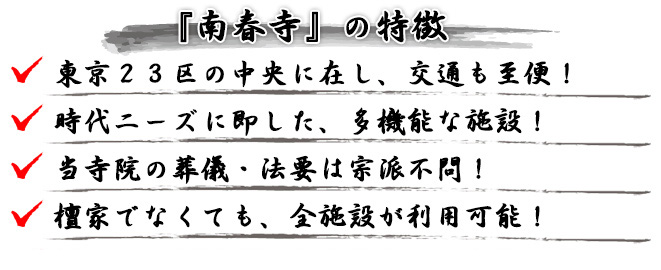 『南春寺』の特徴
東京２３区の中央に在し、交通も至便！
時代ニーズに即した、多機能な施設！
当寺院の葬儀・法要は宗派不問！
檀家でなくても、全施設が利用可能！